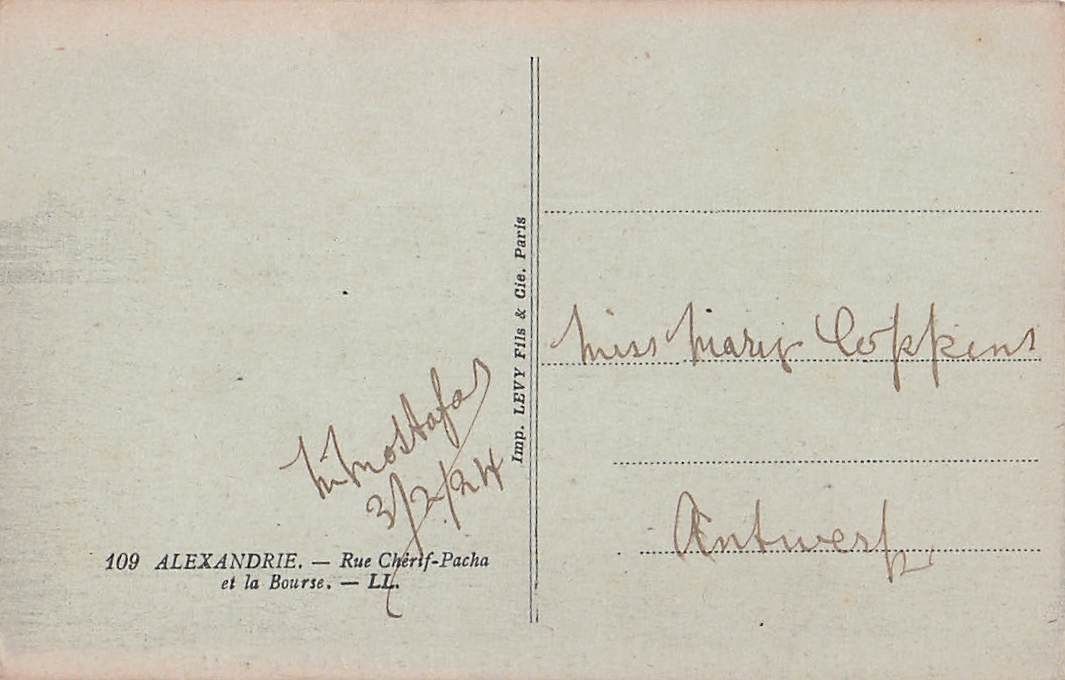 M. Mostafa
3/2/24
109 ALEXANDRIE. — Rue Chérif-Pacha
et la Bourse. — LL.
Imp. LEVY Fils & Cie. Paris
Miss Mary Coppens
Antwerp